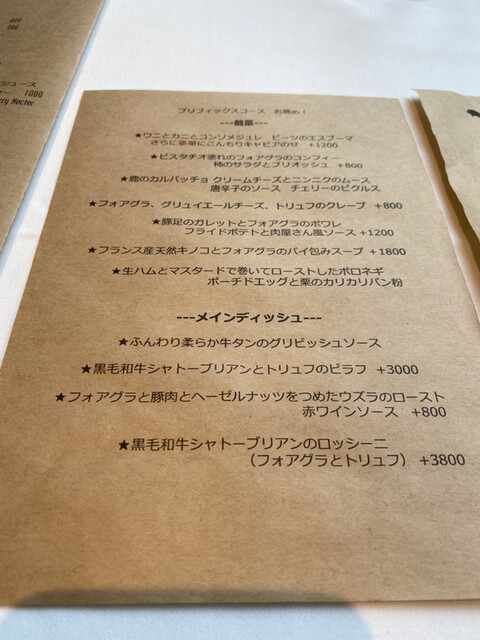 ジュース
1000
rry Nectar
プリフィックスコース お薦め！
---前菜---
★ウニとカニとコンソメジュレ ビーツのエスプーマ
さらに豪華にこんもりキャビアのせ +1200
★ピスタチオ塗れのフォアグラのコンフィー
柿のサラダとブリオッシュ +800
★鹿のカルパッチョ クリームチーズとニンニクのムース
唐辛子のソース チェリーのピクルス
★フォアグラ、グリュイエールチーズ、トリュフのクレープ +800
★豚足のガレットとフォアグラのポワレ
フライドポテトと肉屋さん風ソース +1200
★フランス産天然キノコとフォアグラのパイ包みスープ +1800
★生ハムとマスタードで巻いてローストしたポロネギ
ポーチドエッグと栗のカリカリパン粉
---メインディッシュ---
★ふんわり柔らか牛タンのグリビッシュソース
★黒毛和牛シャトーブリアンとトリュフのピラフ +3000
★フォアグラと豚肉とヘーゼルナッツをつめたウズラのロースト
赤ワインソース +800
★黒毛和牛シャトーブリアンのロッシーニ
（フォアグラとトリュフ） +3800